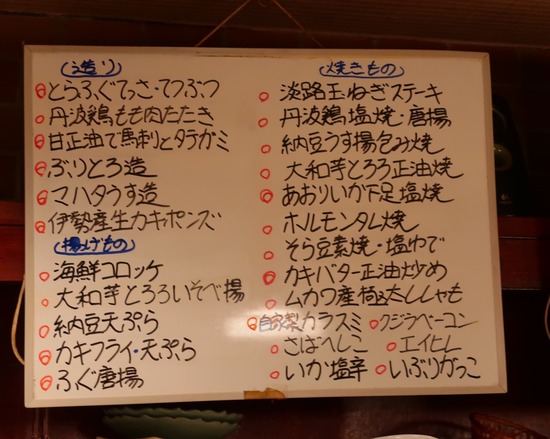 造り
とらふぐてっさ・てつぶつ
丹波鶏もも肉たたき
甘正油で馬刺とタテガミ
ぶりとろ造
マハタうす造
伊勢産生カキポンズ
揚げもの
海鮮コロッケ
大和芋とろろいそべ揚
納豆天ぷら
カキフライ・天ぷら
ふぐ唐揚
焼きもの
淡路玉ねぎステーキ
丹波鶏塩焼・唐揚
納豆うす揚包み焼
大和芋とろろ正油焼
あおりいか下足塩焼
ホルモンタレ焼
そら豆素焼・塩ゆで
カキバター正油炒め
ムカワ産 ししゃも
自家製カラスミ クジラベーコン
さばへしこ エイヒレ
いか塩辛 いぶりがっこ